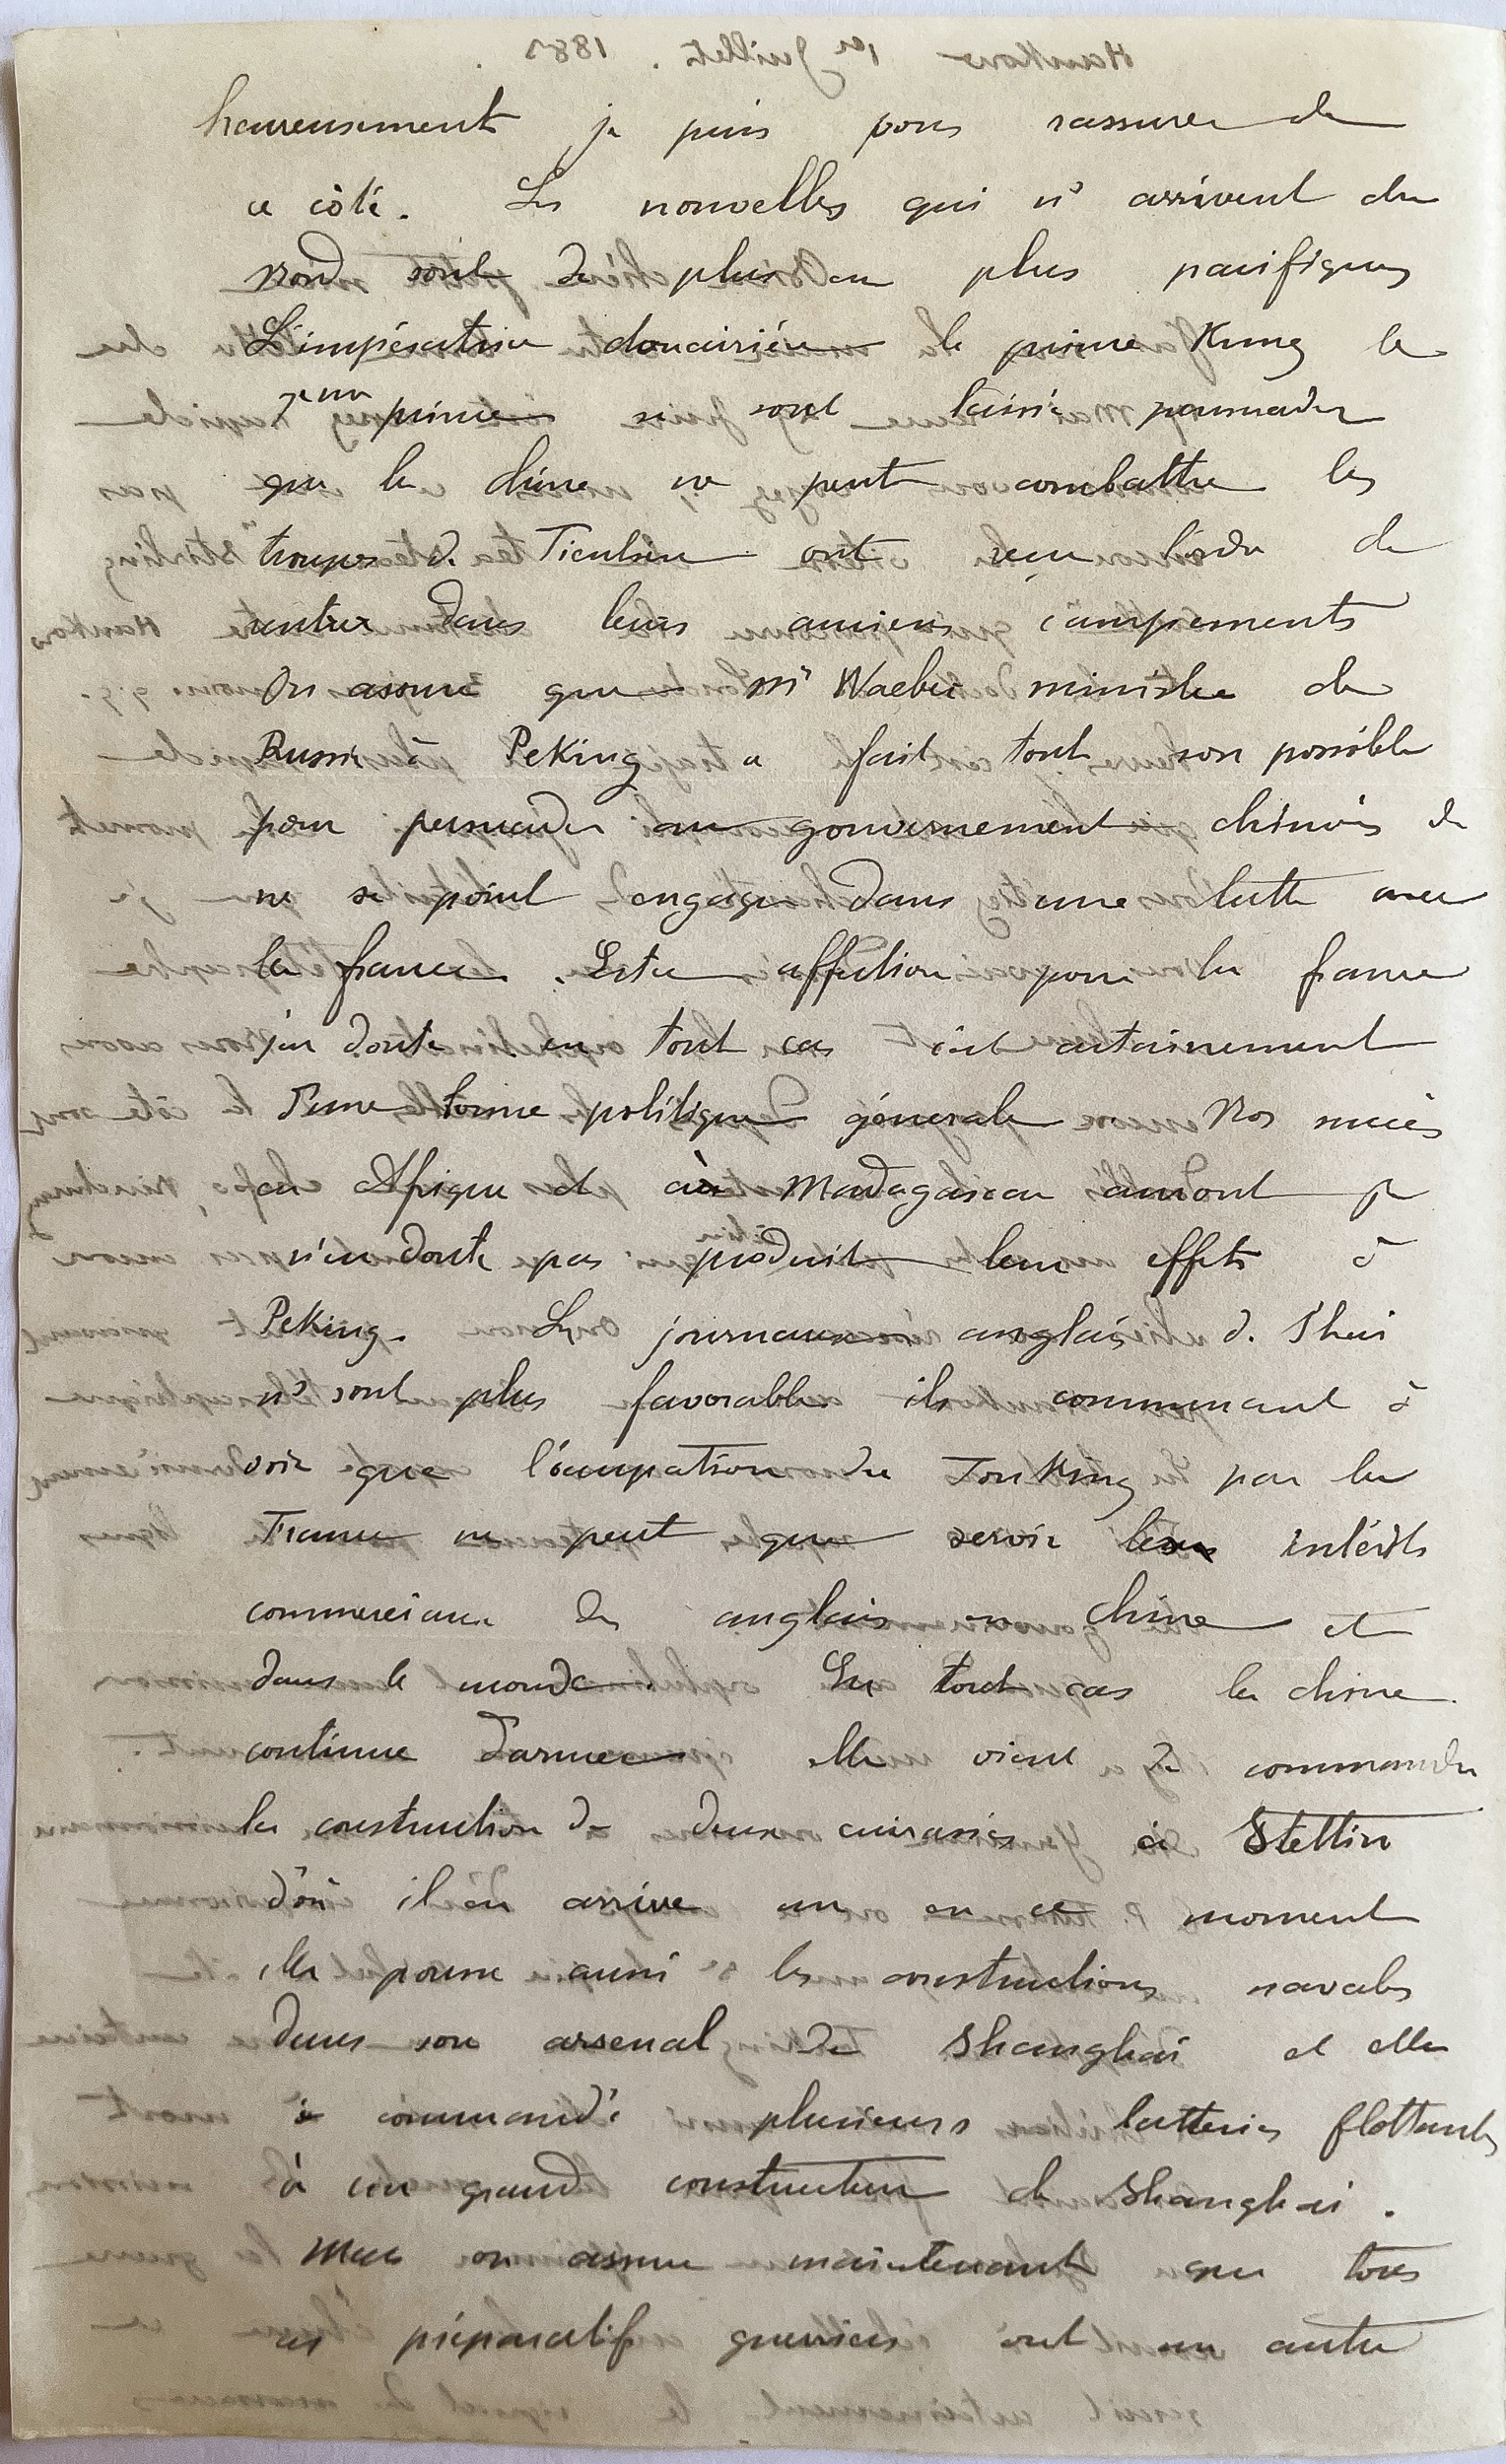 heureusement je puis vous rassurer de
ce côté. Les nouvelles qui n' arrivent du
Nord sont de plus en plus pacifiques
L'impératrice douairière le prince Kung le
7eme prince se sont laissé persuader
que la chine ne peut combattre les
troupes de Tientsin ont reçu l'ordre de
rentrer dans leurs anciens campements
On assure que Mr Waeber ministre de
Russie à Peking a fait tout son possible
pour persuader au gouvernement chinois de
ne se point engager dans une lutte avec
la france. Est ce affection pour la france
j'en doute en tout cas c'est certainement
d'une bonne politique génerale Nos succès
en Afrique et à Madagascar auront je
n'en doute pas produit leur effets à
Peking. Les journaux anglais de S'hai
n' sont plus favorables ils commencent à
voir que l'occupation du TonKing par la
France ne peut que servir les intérêts
commerciaux des anglais en chine et
dans le monde. En tout cas la chine
continue d'armer elle vient de commander
la construction de deux cuirassés à Stettin
d'où il en arrive un en ce moment
elle pousse aussi les constructions navales
dans son arsenal de Shanghai et elle
a commandé plusieurs batteries flottantes
à un grand constructeur de Shanghai.
Mais on assure maintenant que tous
ces préparatifs guerriers ont un autre